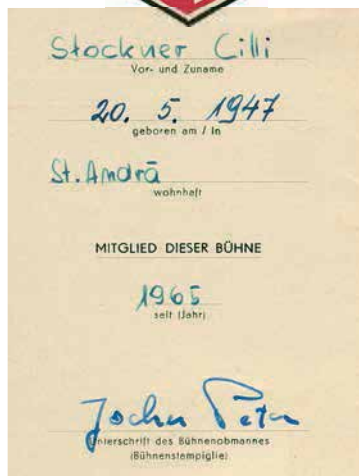 Stockner Cilli
Vor- und Zuname
20. 5. 1947
geboren am / in
St. Andrä
wohnhaft
MITGLIED DIESER BÜHNE
1965
seit (Jahr)
Jocher Peter
Unterschrift des Bühnenobmannes
(Bühnenstampiglie)